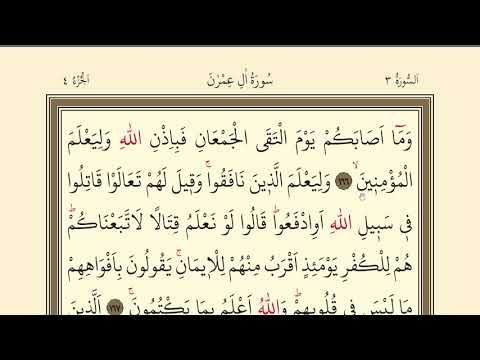 اَلسُّورَةُ ٣ سُورَةُ اٰلِ عِمْرٰنَ اَلْجُزْءُ ٤
وَمَٓا اَصَابَكُمْ يَوْمَ الْتَقَى الْجَمْعَانِ فَبِاِذْنِ اللّٰهِ وَلِيَعْلَمَ
الْمُؤْمِنٖينَۙ ﴿١٦٦﴾ وَلِيَعْلَمَ الَّذٖينَ نَافَقُواۚ وَقٖيلَ لَهُمْ تَعَالَوْا قَاتِلُوا
فٖى سَبٖيلِ اللّٰهِ اَوِادْفَعُواؕ قَالُوا لَوْ نَعْلَمُ قِتَالًا لَاتَّبَعْنَاكُمْؕ
هُمْ لِلْكُفْرِ يَوْمَئِذٍ اَقْرَبُ مِنْهُمْ لِلْاٖيمَانِۚ يَقُولُونَ بِاَفْوَاهِهِمْ
مَا لَيْسَ فٖى قُلُوبِهِمْؕ وَاللّٰهُ اَعْلَمُ بِمَا يَكْتُمُونَۚ ﴿١٦٧﴾ اَلَّذٖينَ